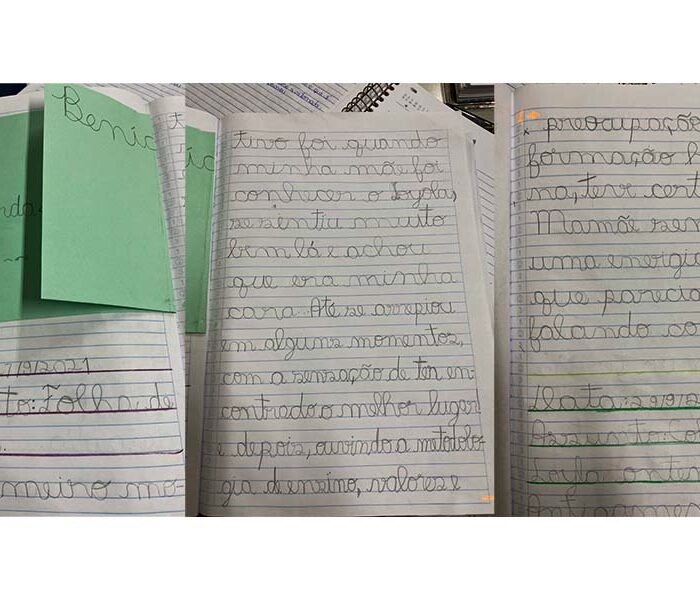 Benic
7/9/2021
to: Folha de
meiro mo-
tivo foi quando
minha mãe foi
conhecer o Loyola,
se sentiu muito
bem lá e achou
que era minha
cara. Até se arrepiou
em alguns momentos,
com a sensação de ter en-
contrado o melhor lugar
e depois, ouvindo a metodolo-
gia de ensino, valores e
preocupação
formação h
na, teve cert
Mamãe sen
uma energia
que parecia
falando co
Data: 29/9/2
Assunto: Co